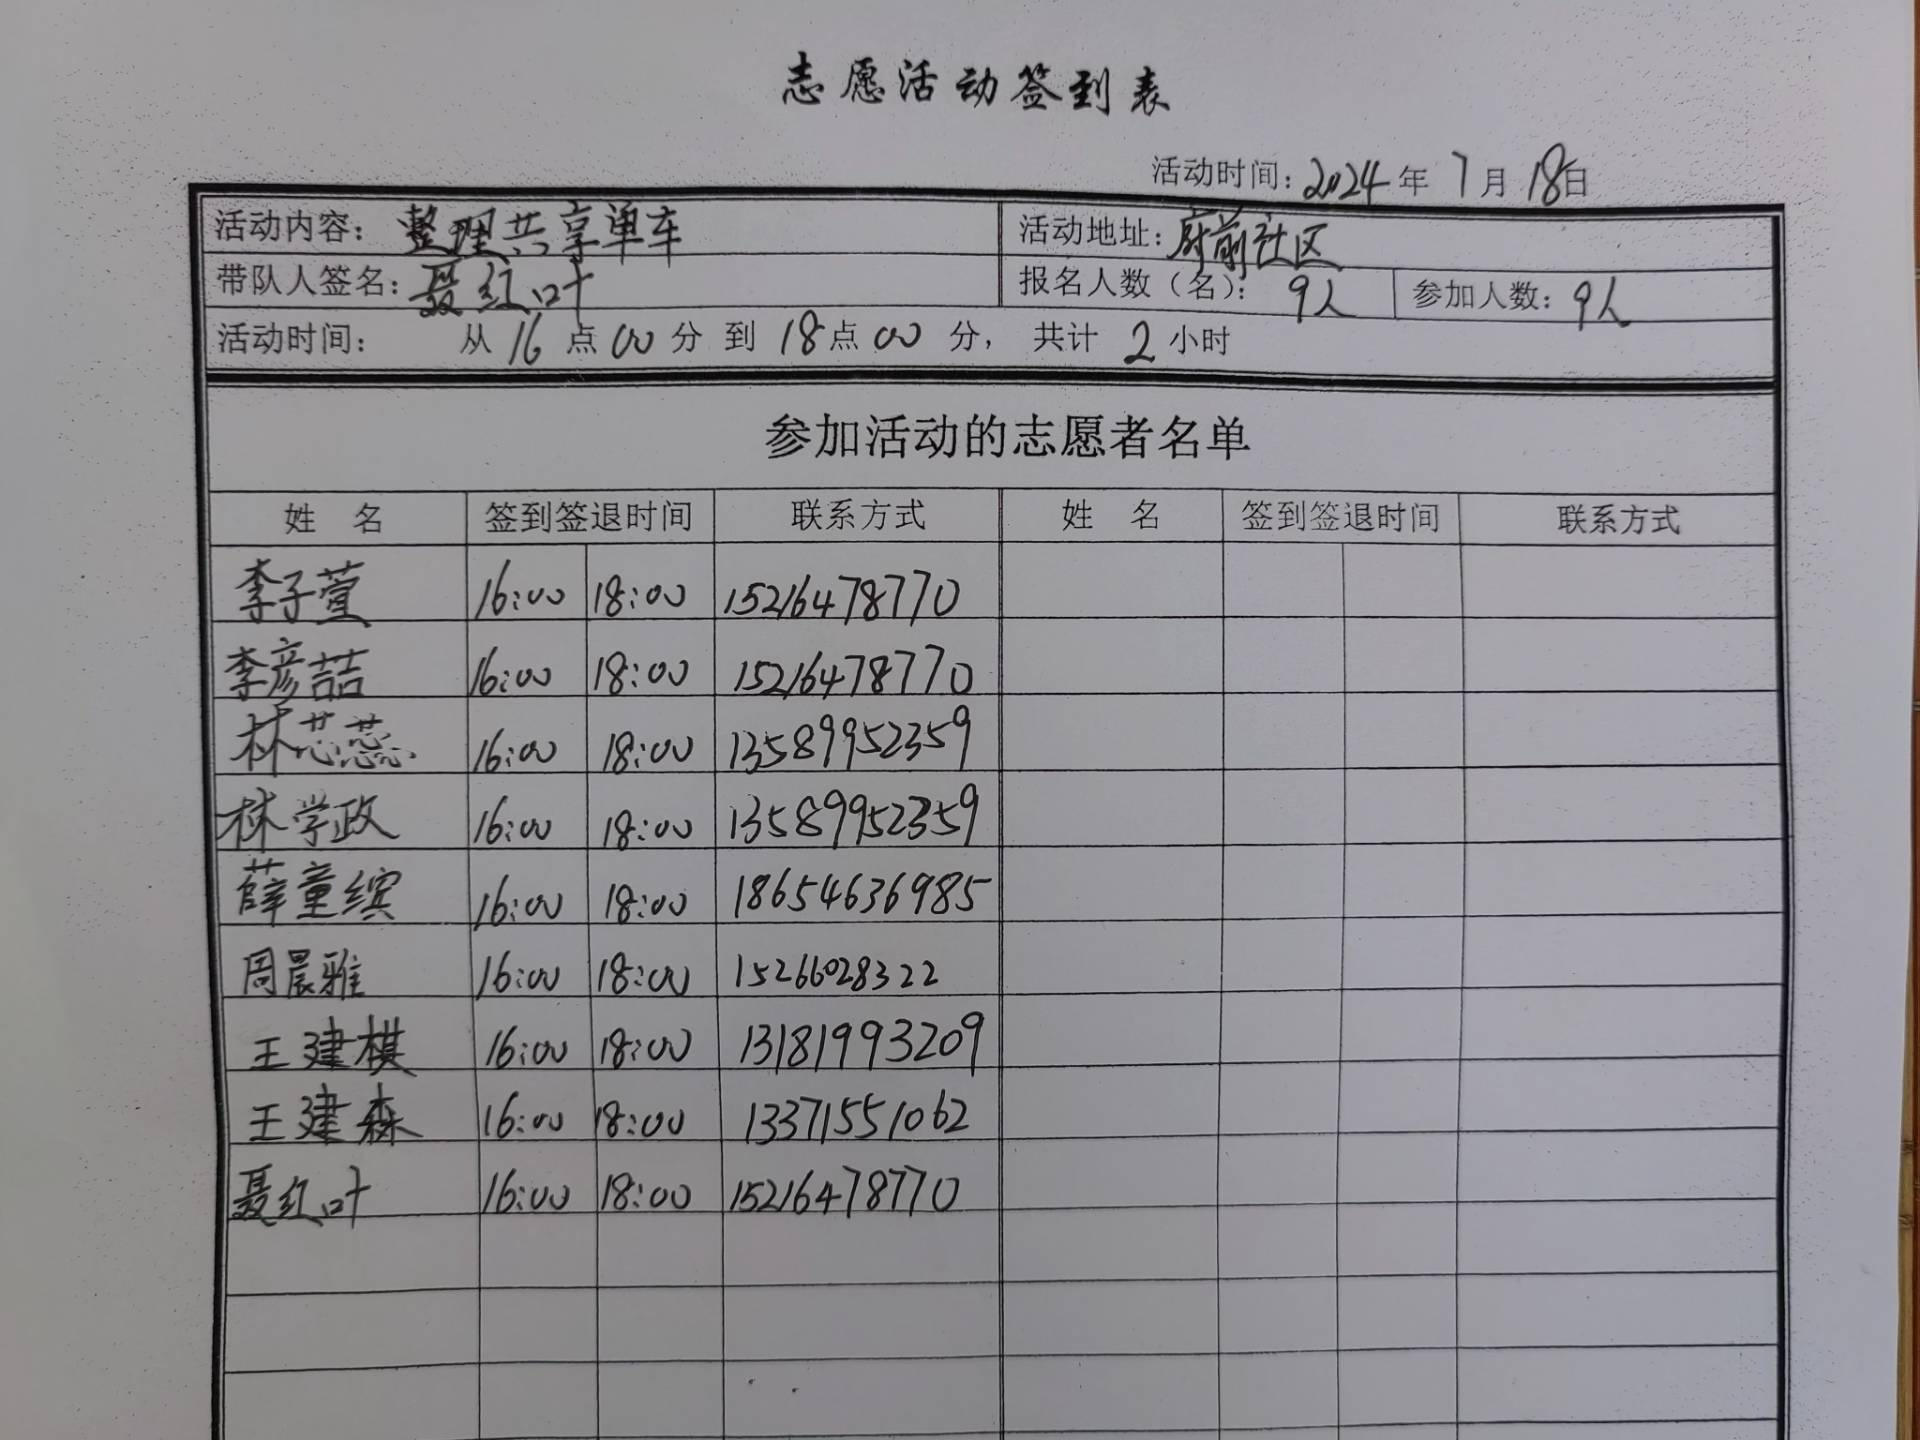 志愿活动签到表
活动时间：2024年7月18日
活动内容：整理共享单车 活动地址：府前社区
带队人签名：聂红叶 报名人数（名）：9人 参加人数：9人
活动时间： 从16点00分到18点00分，共计2小时
参加活动的志愿者名单
姓 名 签到签退时间 联系方式 姓 名 签到签退时间 联系方式
李子萱 16:00 18:00 15216478770
李彦喆 16:00 18:00 15216478770
林芯蕊 16:00 18:00 13589952359
林学政 16:00 18:00 13589952359
薛童缤 16:00 18:00 18654636985
周晨雅 16:00 18:00 15266028322
王建棋 16:00 18:00 13181993209
王建森 16:00 18:00 13371551062
聂红叶 16:00 18:00 15216478770